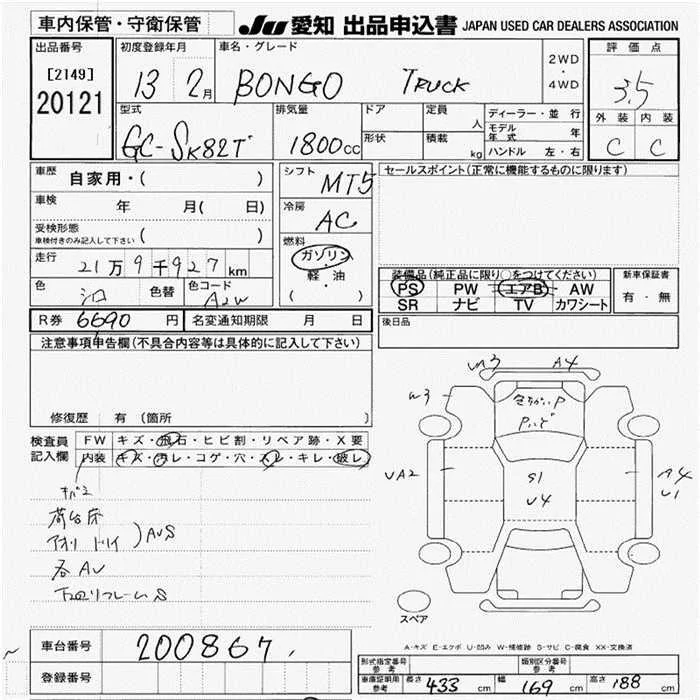 車内保管・守衛保管
JU 愛知 出品申込書 JAPAN USED CAR DEALERS ASSOCIATION
出品番号
[2149]
20121
初度登録年月
13 2月
車名・グレード
BONGO TRUCK
2WD
・
4WD
評価点
3.5
外装 内装
C C
型式
GC-SK82T
排気量
1800cc
ドア
形状
定員 人
積載 kg
ディーラー・並行
モデル年式 年
ハンドル 左・右
車歴 自家用・( )
車検 年 月( 日)
受検形態
車検付きのみ記入して下さい ( )
走行 21万9千927km
色 シロ 色替 色コード A2W
シフト MT5
冷房 AC
燃料
ガソリン
・
軽・油
( )
セールスポイント(正常に機能するものに限ります)
装備品(純正品に限り○をつけてください)
PS PW エアB AW
SR ナビ TV カワシート
新車保証書
有・無
R券 6690円 名変通知期限 月 日
後日品
注意事項申告欄(不具合内容等は具体的に記入して下さい)
修復歴 有(箇所 )
検査員記入欄
FW キズ・飛石・ヒビ割・リペア跡・X要
内装 キズ・汚レ・コゲ・穴・スレ・キレ・破レ
荷台床
アオリ AUS
各AU
下回リフレームS
W3
A4
UA2
S1
U4
A4
U1
スペア
A-キズ E-エクボ U-凹み W-補修跡 S-サビ C-腐食 XX-交換済
車台番号 200867
登録番号
形式指定番号 参考
類別区分番号 参考
車庫証明用 参考 長さ 433cm 幅 169cm 高さ 188cm